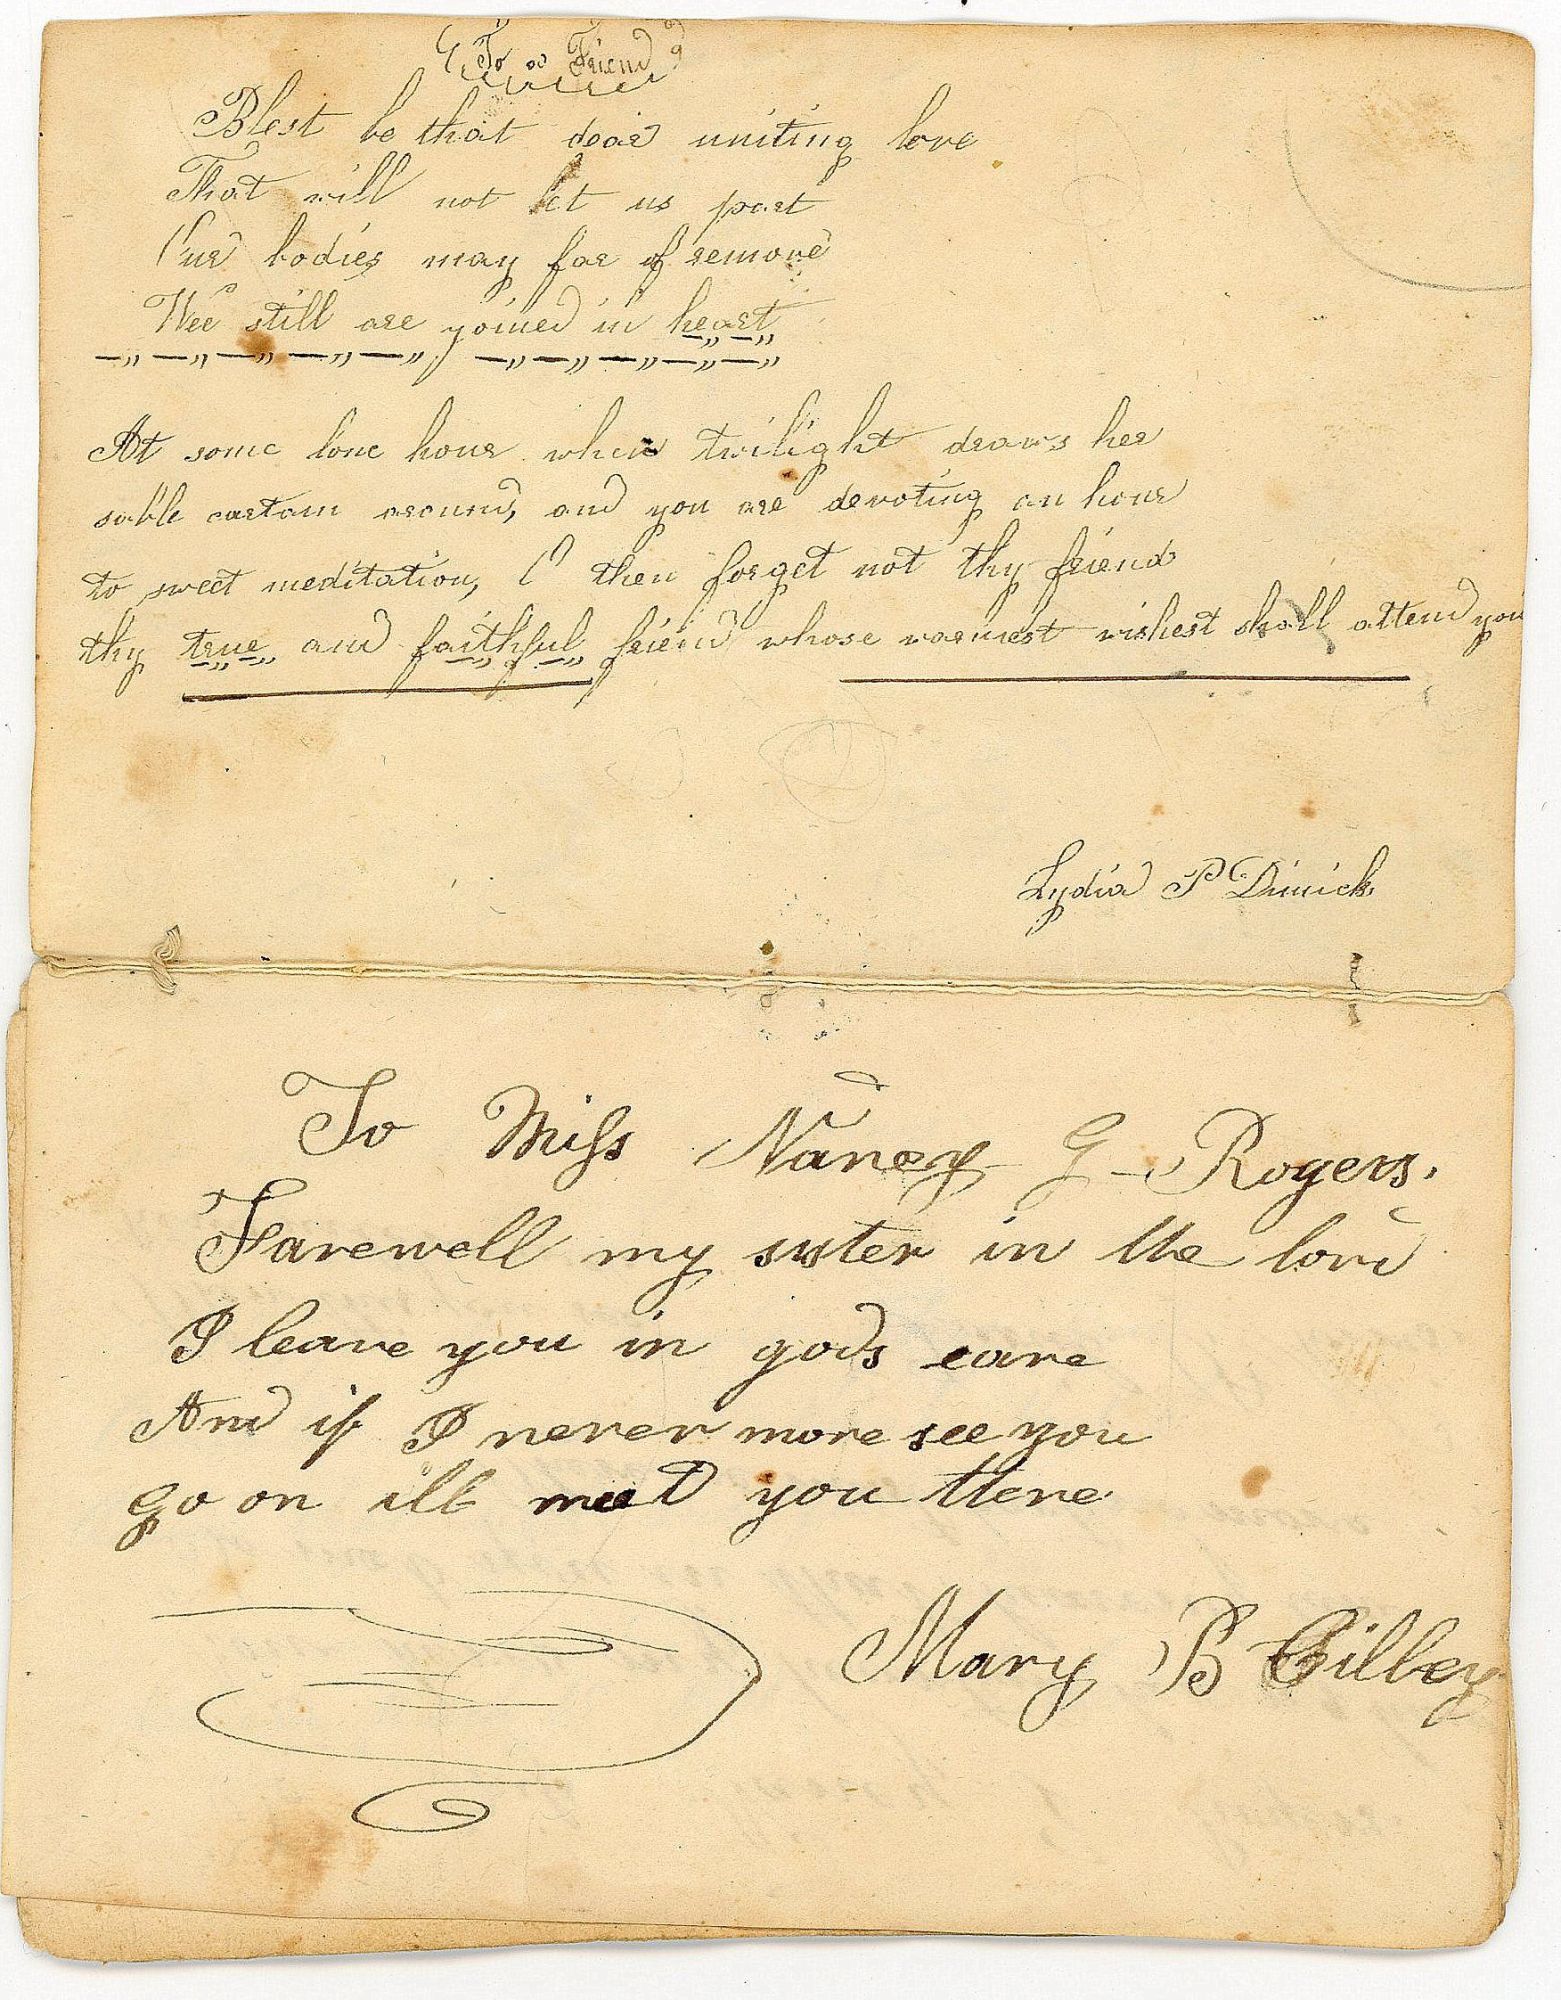 To a Friend
Blest be that dear uniting love
That will not let us part
Our bodies may far of remove
Wee still are joined in heart
At some lone hour when twilight draws her
sable cartain around, and you are devoting an hour
to sweet meditation, O then forget not thy friend
thy true and faithful friend whose warmest wishest shall attend you
Lydia P Dimick
To Miss Nancy G Rogers.
Farewell my sister in the lord
I leave you in gods care
And if I never more see you
go on ill meet you there
Mary B Cilley